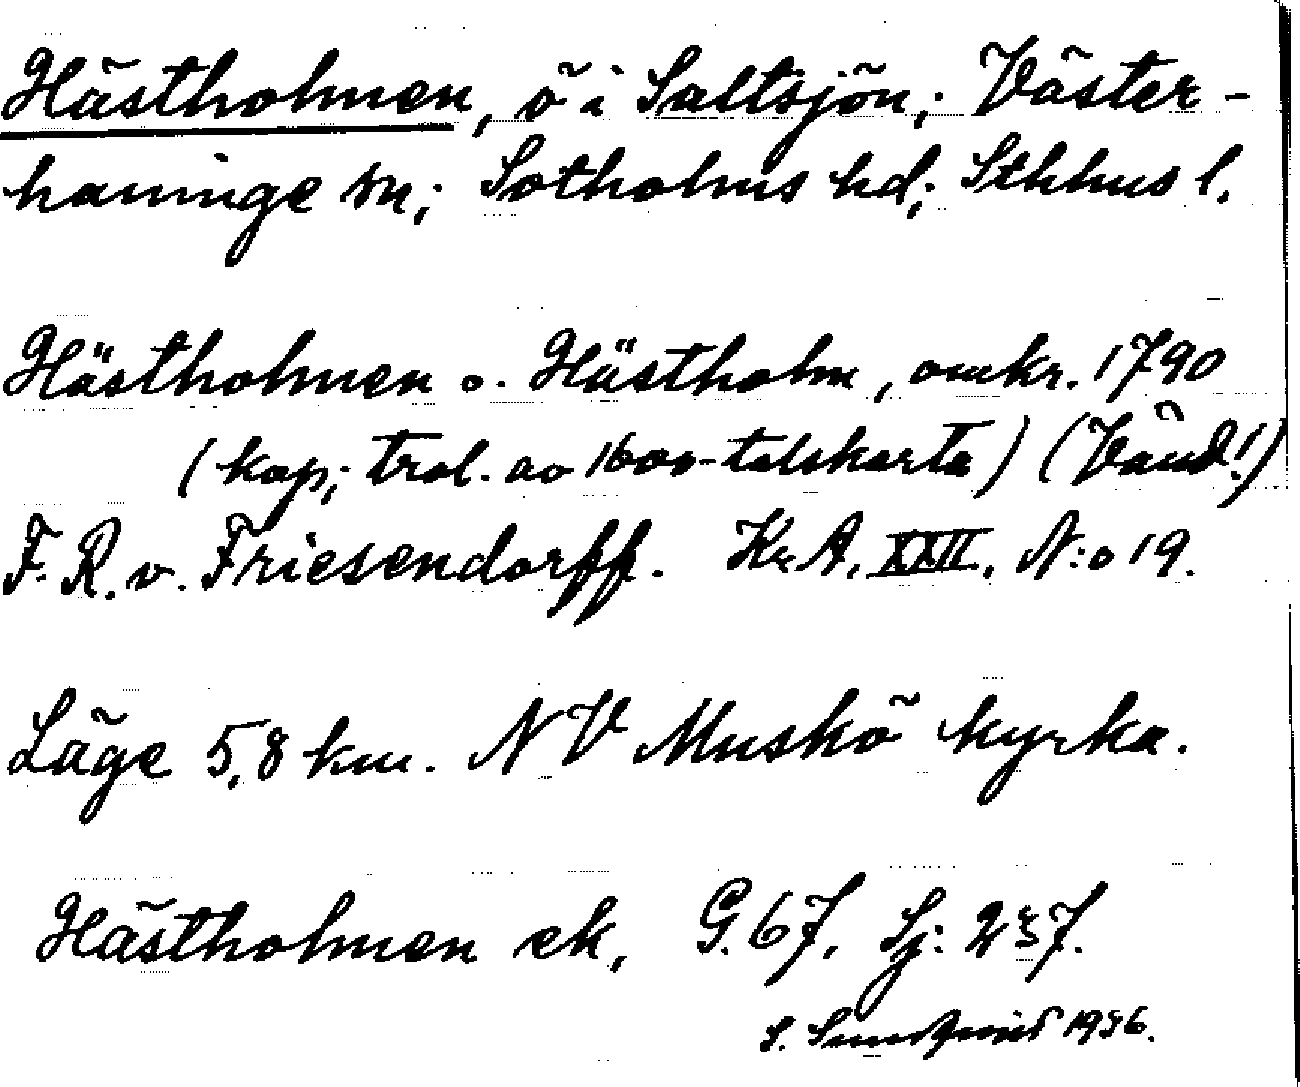 Hästholmen, ö i Saltsjön; Väster-
haninge sn; Sotholms hd; Sthlms l.
Hästholmen o. Hästholm, omkr. 1790
(kop; trol. av 1600-talskarta) (Vänd!)
F. R. v. Friesendorff. Kr. A. XXII, N:o 19.
Läge 5,8 km. NV Muskö kyrka.
Hästholmen ek, G. 67, Sj: 237.
S. Sundqvist 1936.